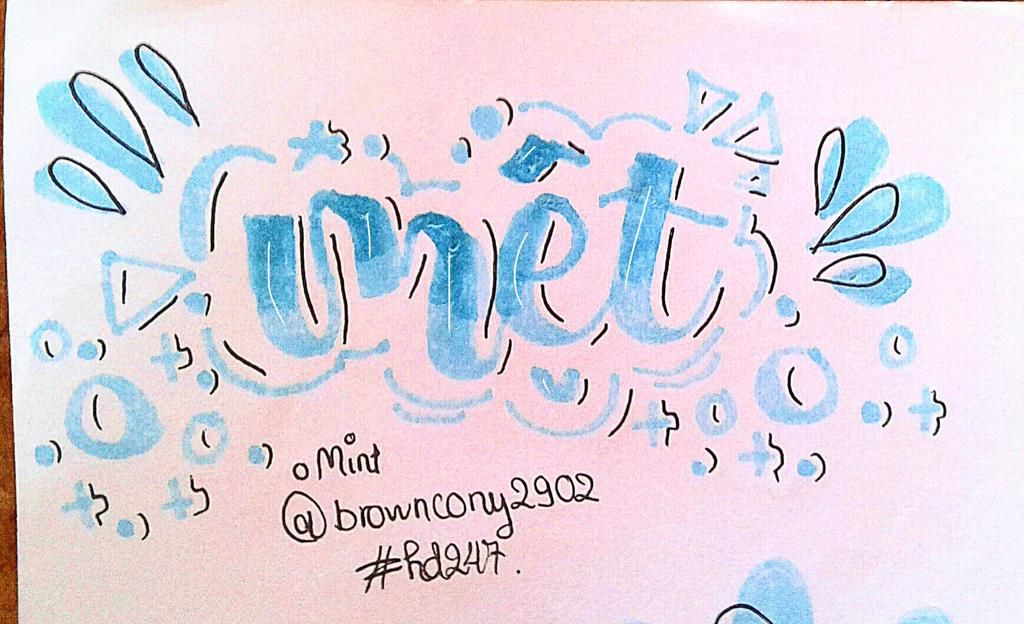 Mint
@browncony2902
#hd247.